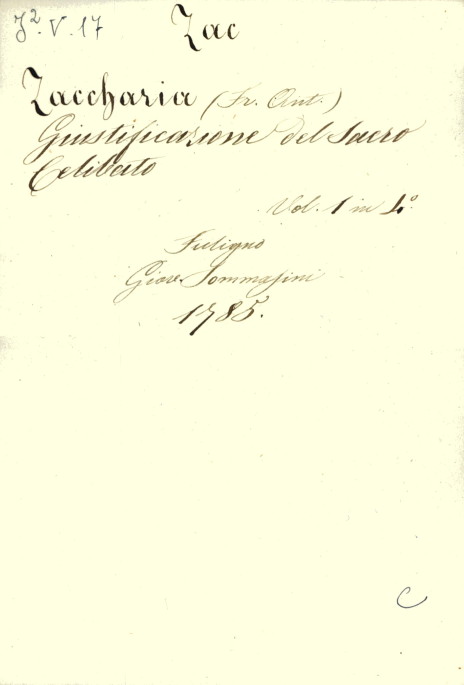 J². V. 17
Zac
Zaccharia (Fr. Ant.)
Giustificazione del Sacro
Celibato
Vol. 1 in 4°.
Fuligno
Giov. Tommasini
1785.
C